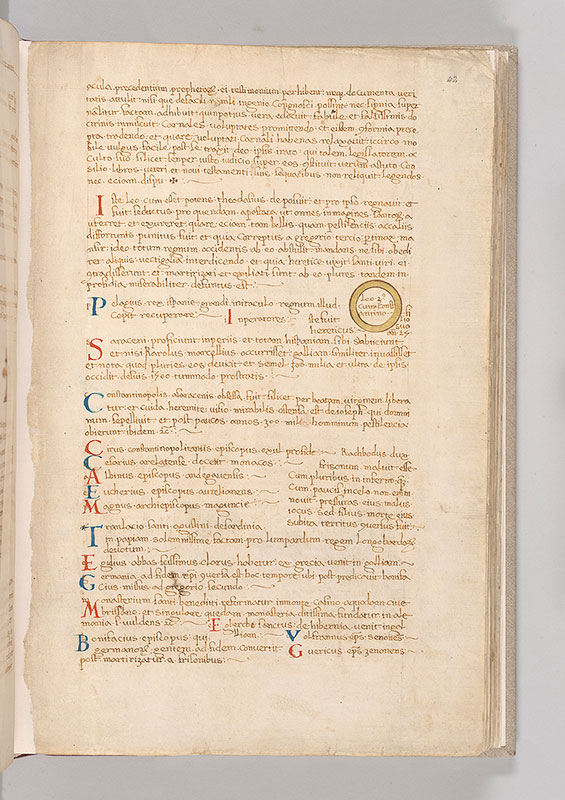 42
occula. precedentium. prophetarum. et. testimonium. perhibent. neque. documenta. veri
tatis. attulit. nisi. que. de facili.
naliter. factam. adhibuit. quin potius. vera. edocuit. fabulis. et. falsissimis. do
ctrinis inmiscuit. Carnales. voluptates. promittendo. et. eisdem. conformia. prece
pta. tradendo. et. quare. voluptati. Carnali. habenas. relaxavit. iccirco. mo
bile. vulgus. facile. post. se. traxit. deo. ipsis. irato. qui talem. legislatorem. oc
culto. suo. scilicet. semper. iusto. iudicio. super. eos. constituit. verum. astuto. Con
silio. libros. veteri. et. novi. testamenti. suis. sequacibus. non. reliquit. legendos
nec. eciam. dispu
Iste. leo. cum. esset. potens. theodosius. deposuit. et. pro ipso. regnavit. et
fuit. seductus. pro. quendam. apostata. ut. omnes. inmagines. Sanctorum. a
uferret. et. exureret. quare. eciam. tam. bellis. quam. pestilenciis. ac. aliis.
diffortuniis. punitus. fuit. et. quia. Correptus. a. gregorio. tercio. pertinax. man
sit. ideo. totum. regnum. occidentis. ab. eo. abstulit. mandans. ne. sibi. obedi
ret. aliquis. vectigalia. interdicendo. et. quia. heretice. vixit. Santi. viri. ei.
contradixerunt. et. martirizati. et. exiliati. sunt. ab. eo. plures. tandem. in.
perfidia. miserabiliter. defunctus. est.
Pelagius. rex. ispanie. grandi. miraculo. regnum. illud.
Cepit. recuperare.
Imperatores.
iste fuit
hereticus.
leo. 3.
cum Const
antino.
fi
lio
suo
an. 25.
Saraceni. proficiunt. inperiis. et. totam. hispaniam. sibi. subiciunt.
et. nisi. Karolus. marcellius. occurrisset. galliam. similiter. invasisset
et. nota. quod. pluries. eos. devicit. et. semel. 300. milia. et. ultra. de. ipsis.
occidit. de suis. 1500. tammodo. prostratis.
Constantinopolis. a saracenis. obsessa. fuit. scilicet. per. beatam. virginem. libera
tur. et. cuidam. heremite. visio. mirabilis. ostensa. est. de ioseph. qui. domini
num. sepellivit. et. post. paucos. annos. 300. mil. hominnum. pestilencia
obierunt. ibidem.
Cirus. constantinopolitanus. episcopus. exul. profide.
Cesarius. arelatense. docet. monacos.
Albinus. episcopus. andegavensis.
Eucherius. episcopus. aurelianens.
Magnus. archiepiscopus. maguncie.
Rachodus. dux.
frisonum. maluit. esse.
Cum. pluribus. in inferno. quam.
Cum. paucis. in celo. non. enim.
novit. pressuras. eius. malus.
iocus. sed. filius. mortis. eius.
subita. territus. querius. fuit.
Tranlacio. santi. agustini. de sardinia.
in. papiam. solemnissime. factam. pro. lumpardum. regem. Longobardorum.
devotum.
Egidius. abbas. sctissimus. clarus. habetur. ex. grecia. venit. in. galliam.
Germania. ad. fidem. Christi. conversa. est. hoc. tempore. ubi. post. predicavit. bonifa
Cius. missus. ad. gregorio. secundo.
Monasterium. santi. benediti. reformatur. in monte. casino. a quodam. cive
brissiano. et. singulare. quedam. monasteria. ditissima. fundatur. in ale
mania. s. vuldens.
Eberchtus. sanctus. de. hibernia. venit. in gal
liam.
Bonifacius. episcopus. qui
germanorum. gentem. ad. fidem. convertit
post. martirizatur. a. frisonibus.
Volframius. eps. senones.
Guericus. eps. zenonens.